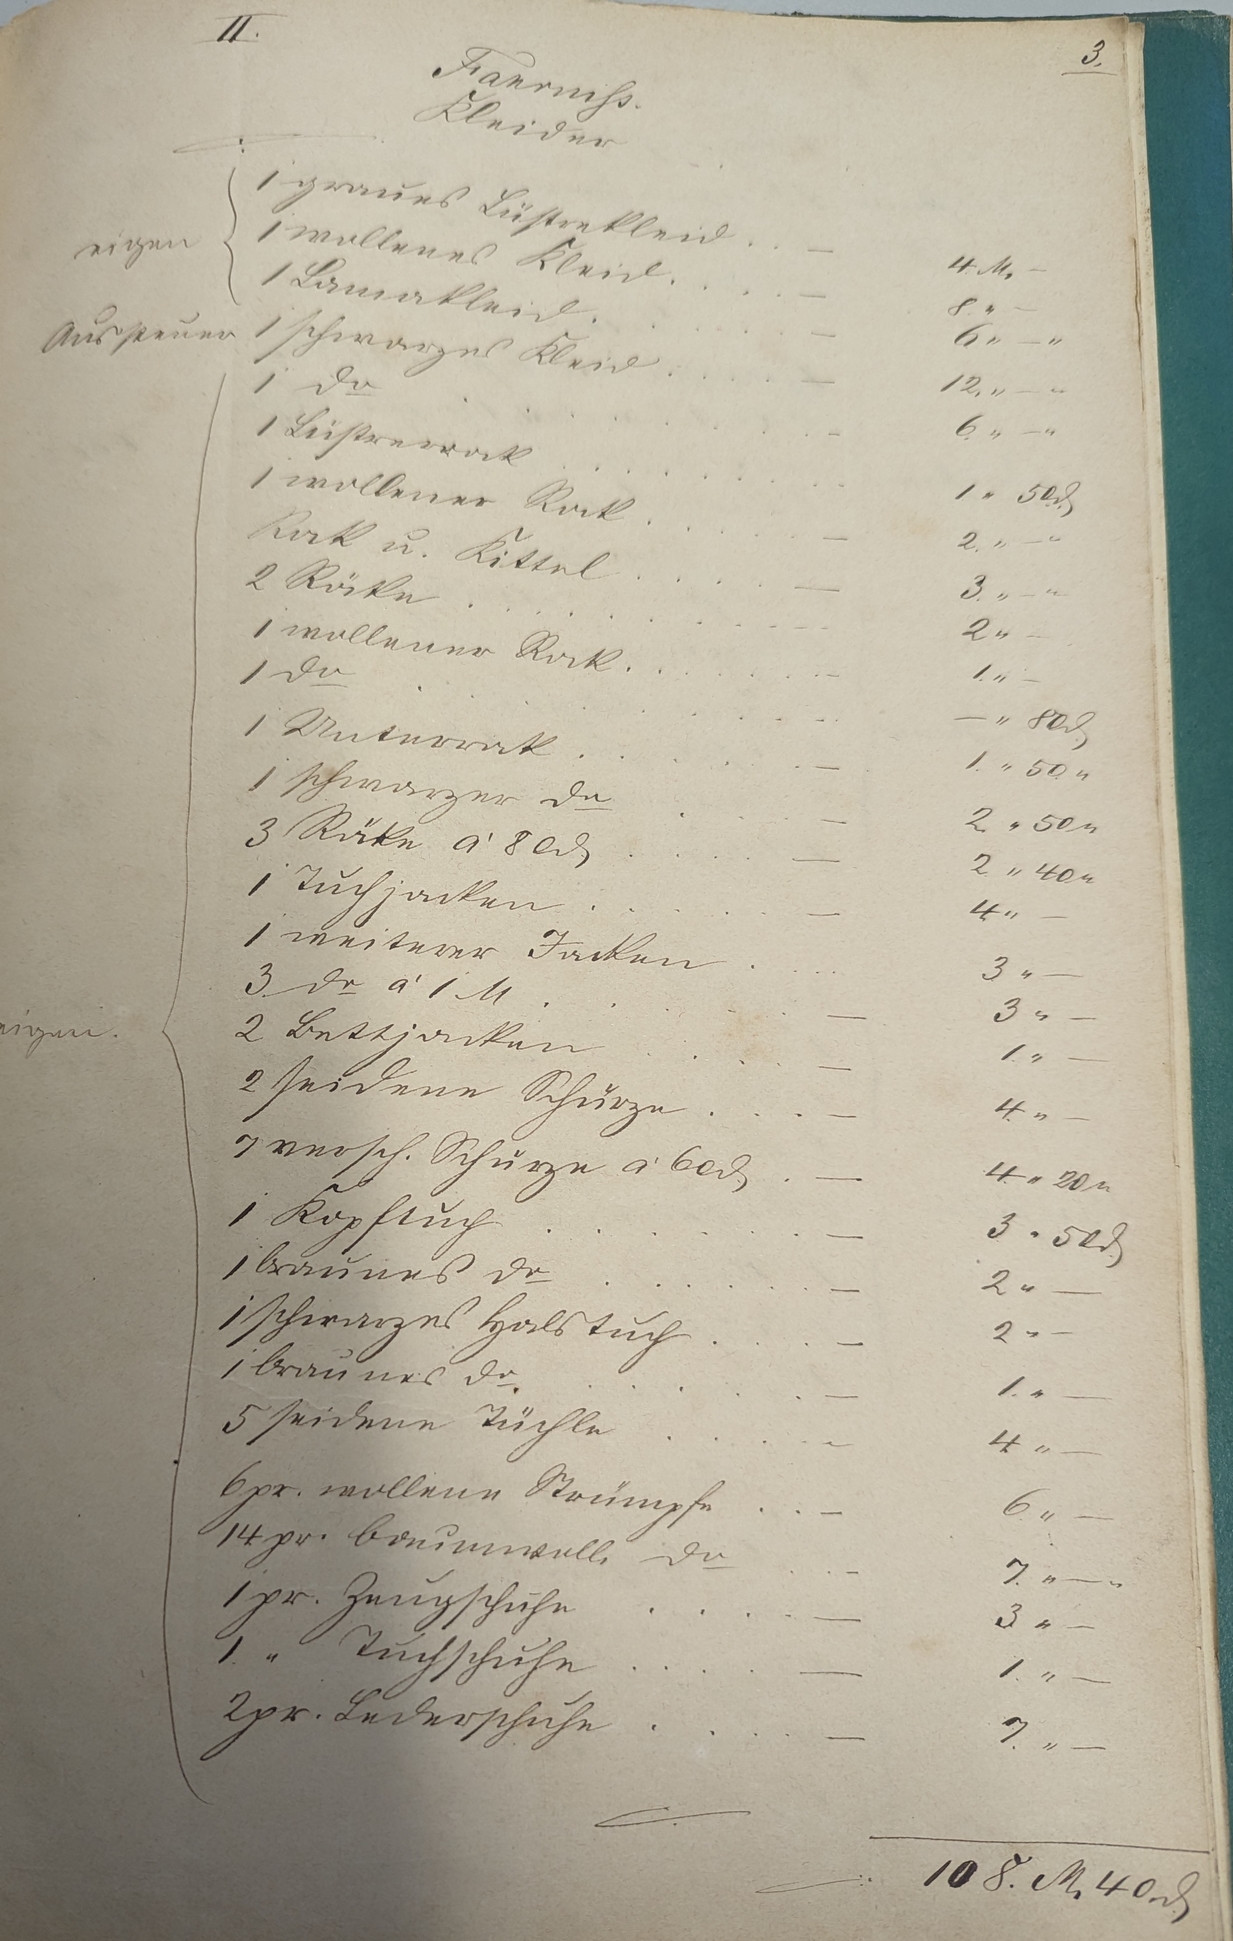 II.
3.
Faerniss.
Kleider
1 graues Lüstrekleid . . — 4. M. —
eigen
1 wollenes Kleid. . . . — 8. " —
1 Lamakleid. . . . . — 6 " — "
Aussteuer 1 schwarzes Kleid . . . . — 12. " — "
1 do . . . . . . — 6. " — "
1 Lüstrerock . . . . . . 1 " 50 ₰
1 wollener Rock . . . . — 2. " — "
Rock u. Kittel . . . . — 3. " — "
2 Röcke . . . . . . 2 " —
1 wollener Rock . . . . . — 1. " —
1 do . . . . . . — " 80 ₰
1 Unterrock . . . . . — 1. " 50 "
1 schwarzer do . . . . — 2 " 50 "
3 Röcke á 80 ₰ . . . . — 2 " 40 "
1 Tuchjacken . . . . . — 4 " —
1 weiterer Jacken . . . . 3 " —
3 do á 1 M . . . . . — 3 " —
eigen.
2 Bettjacken . . . . — 1. " —
2 seidene Schürze . . . — 4. " —
7 versch. Schürze á 60 ₰ . — 4. " 20 "
1 Kopftuch . . . . . — 3 " 50 ₰
1 braunes do . . . . . — 2 " —
1 schwarzes Halstuch . . . — 2 " —
1 braunes do . . . . . — 1. " —
5 seidene Tüchle . . . . — 4 " —
6 pr. wollene Strümpfe . . — 6 " —
14 pr. baumwoll. do . . — 7. " — "
1 pr. Zeugschuhe . . . . — 3 " —
1. " Tuchschuhe . . . . — 1. " —
2 pr. Lederschuhe . . . . — 7. " —
108. M. 40 ₰